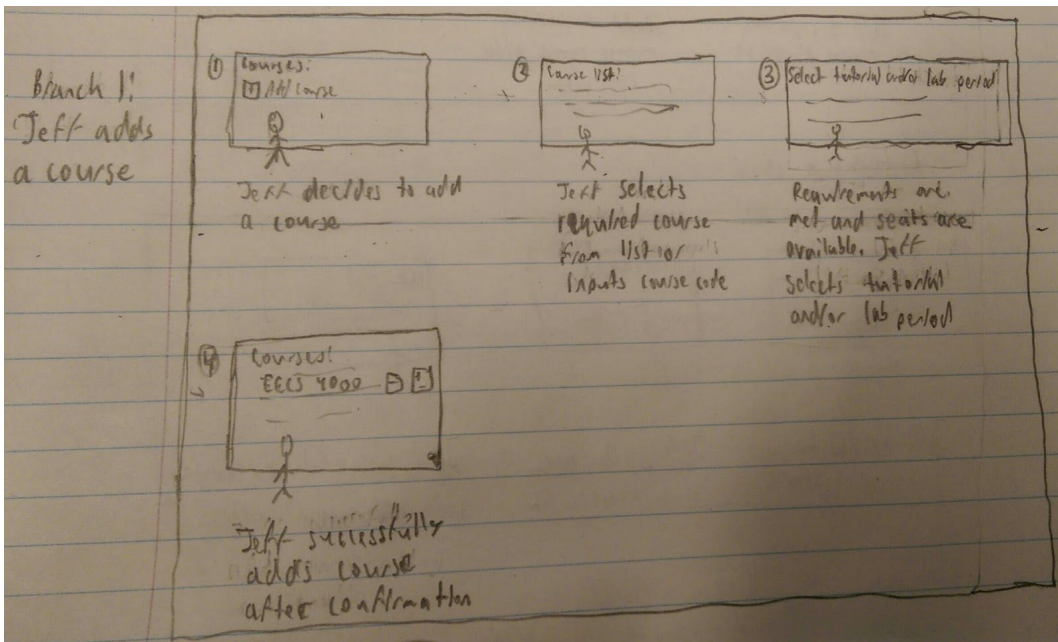 Branch 1:
Jeff adds
a course
①
Courses:
Add course
Jeff decides to add
a course
②
Course list:
Jeff selects
required course
from list or
inputs course code
③
Select tutorial and/or lab period
Requirements are
met and seats are
available. Jeff
selects tutorial
and/or lab period
④
Courses:
EECS 4000
Jeff successfully
adds course
after confirmation